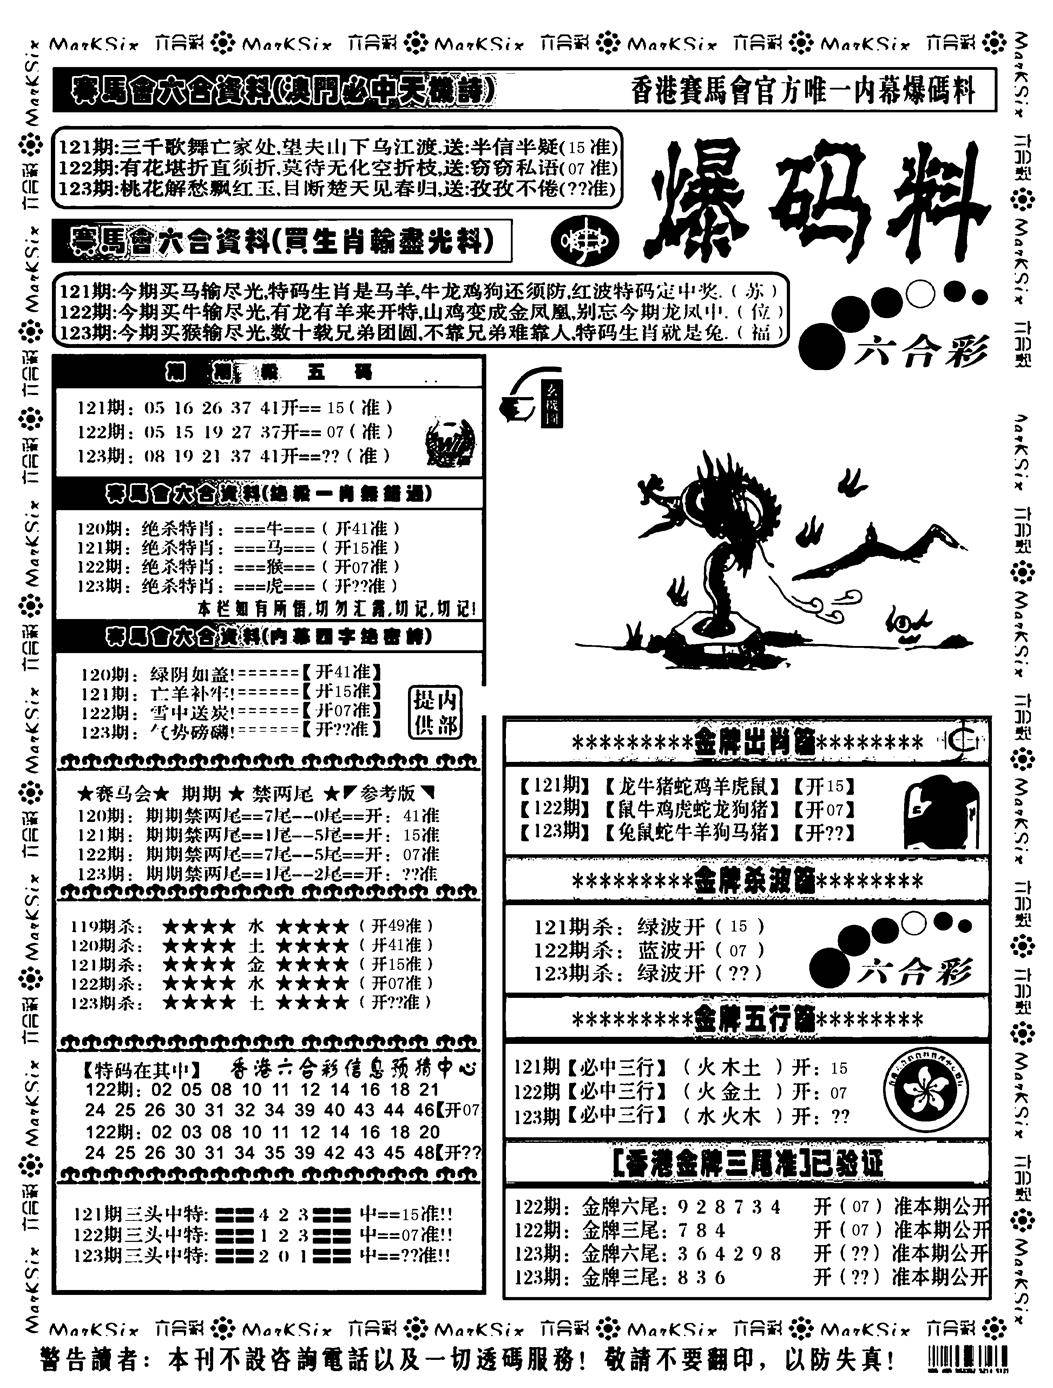 MarKSix 六合彩 MarKSix 六合彩 MarKSix 六合彩 MarKSix 六合彩 MarKSix 六合彩
賽馬會六合資料(澳門必中天機詩)
香港賽馬會官方唯一内幕爆碼料
121期:三千歌舞亡家处,望夫山下乌江渡,送:半信半疑(15准)
122期:有花堪折直须折,莫待无化空折枝,送:窃窃私语(07准)
123期:桃花解愁飘红玉,目断楚天见春归,送:孜孜不倦(??准)
爆码料
賽馬會六合資料(買生肖輸盡光料)
121期:今期买马输尽光,特码生肖是马羊,牛龙鸡狗还须防,红波特码定中奖.(苏)
122期:今期买牛输尽光,有龙有羊来开特,山鸡变成金凤凰,别忘今期龙凤中.(位)
123期:今期买猴输尽光,数十载兄弟团圆,不靠兄弟难靠人,特码生肖就是兔.(福)
六合彩
期期殺五碼
121期: 05 16 26 37 41开== 15(准)
122期: 05 15 19 27 37开== 07(准)
123期: 08 19 21 37 41开==??(准)
玄機圖
賽馬會六合資料(绝殺一肖無錯過)
120期: 绝杀特肖: ===牛===(开41准)
121期: 绝杀特肖: ===马===(开15准)
122期: 绝杀特肖: ===猴===(开07准)
123期: 绝杀特肖: ===虎===(开??准)
本栏如有所悟,切勿汇露,切记,切记!
賽馬會六合資料(内幕四字绝密詩)
120期: 绿阴如盖!======【开41准】
121期: 亡羊补牢!======【开15准】
122期: 雪中送炭!======【开07准】
123期: 气势磅礴!======【开??准】
内部提供
★赛马会★ 期期 ★ 禁两尾 ★参考版
120期: 期期禁两尾==7尾--0尾==开: 41准
121期: 期期禁两尾==1尾--5尾==开: 15准
122期: 期期禁两尾==7尾--5尾==开: 07准
123期: 期期禁两尾==1尾--2尾==开: ??准
119期杀: ★★★★ 水 ★★★★(开49准)
120期杀: ★★★★ 土 ★★★★(开41准)
121期杀: ★★★★ 金 ★★★★(开15准)
122期杀: ★★★★ 水 ★★★★(开07准)
123期杀: ★★★★ 土 ★★★★(开??准)
【特码在其中】 香港六合彩信息预猜中心
122期: 02 05 08 10 11 12 14 16 18 21
24 25 26 30 31 32 34 39 40 43 44 46【开07
122期: 02 03 08 10 11 12 14 16 18 20
24 25 26 30 31 34 35 39 42 43 45 48【开??
121期三头中特: 4 2 3 中==15准!!
122期三头中特: 1 2 3 中==07准!!
123期三头中特: 2 0 1 中==??准!!
*********金牌出肖篇********
【121期】【龙牛猪蛇鸡羊虎鼠】【开15】
【122期】【鼠牛鸡虎蛇龙狗猪】【开07】
【123期】【兔鼠蛇牛羊狗马猪】【开??】
*********金牌杀波篇********
121期杀: 绿波开(15)
122期杀: 蓝波开(07)
123期杀: 绿波开(??)
六合彩
*********金牌五行篇********
121期【必中三行】(火木土)开: 15
122期【必中三行】(火金土)开: 07
123期【必中三行】(水火木)开: ??
[香港金牌三尾准]已验证
122期: 金牌六尾: 9 2 8 7 3 4 开(07)准本期公开
122期: 金牌三尾: 7 8 4 开(07)准本期公开
123期: 金牌六尾: 3 6 4 2 9 8 开(??)准本期公开
123期: 金牌三尾: 8 3 6 开(??)准本期公开
MarKSix 六合彩 MarKSix 六合彩 MarKSix 六合彩 MarKSix 六合彩 MarKSix 六合彩
警告讀者: 本刊不設咨詢電話以及一切透碼服務! 敬請不要翻印, 以防失真!